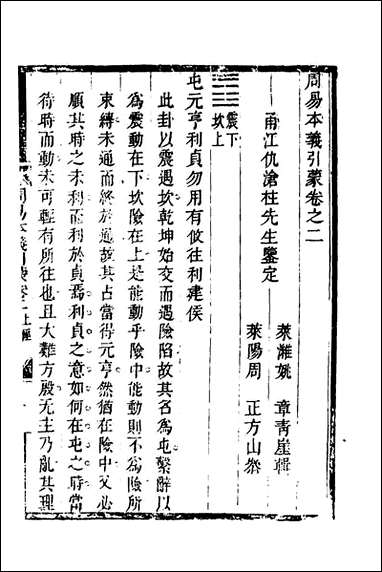 周易本義引蒙卷之二
甬江仇滄柱先生鑒定
萊濰姚 章青崖輯
萊陽周 正方山叅
震下
坎上
屯元亨利貞勿用有攸往利建侯
此卦以震遇坎乾坤始交而遇險陷故其名爲屯繫辭以
爲震動在下坎險在上是能動乎險中能動則不爲險所
束縛未通而終於通故其占當得元亨然猶在險中又必
顧其時之未利而利於貞焉利貞之意如何在屯之時當
待時而動未可輕有所往也且大難方殷无主乃亂其理
周易本義引蒙 卷二 上經